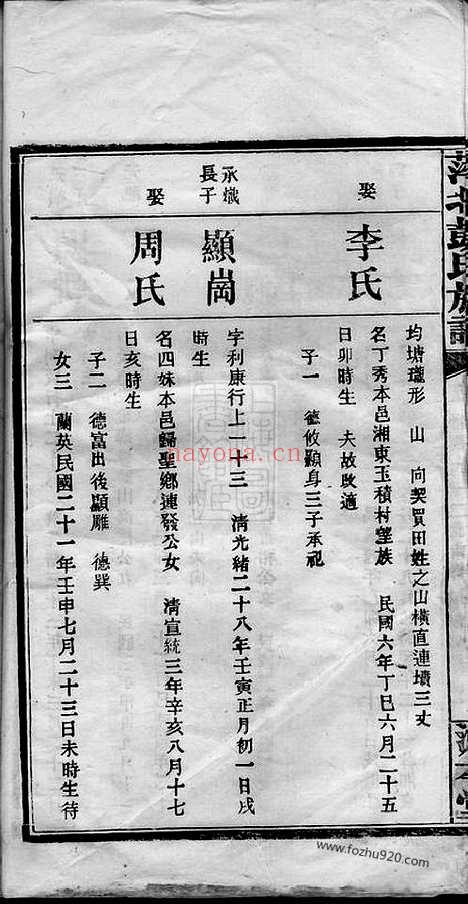 均塘瓏形 山 向契買田姓之山橫直連墳三丈
娶
李氏
名丁秀本邑湘東玉積村望族 民國六年丁巳六月二十五
日卯時生 夫故改適
子一 德攸顯身三子承祀
承熾
長子
顯崗
字利康行上一十三 清光緒二十八年壬寅正月初一日戌
時生
娶
周氏
名四妹本邑歸聖鄉連發公女 清宣統三年辛亥八月十七
日亥時生
子二 德富出後顯雕 德巽
女三 蘭英民國二十一年壬申七月二十三日未時生待
nayona.cn
www.fozhu920.com